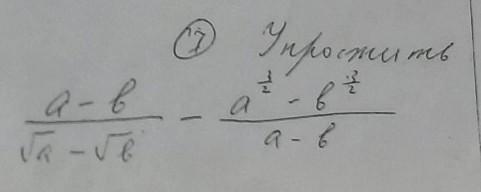 ⑦ Упростить
\frac{a - b}{\sqrt{a} - \sqrt{b}} - \frac{a^{\frac{3}{2}} - b^{\frac{3}{2}}}{a - b}